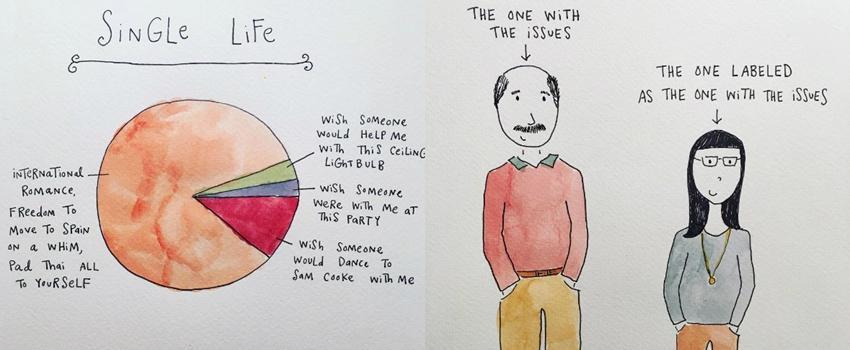 SiNGLe LiFe
iNTeRNATiONAL
ROMANCE,
FREEDOM TO
MOVE TO SPAIN
ON A WHIM,
PAD THAI ALL
TO YOURSELF
WiSH SOMEONE
WOULD HELP ME
WiTH THiS CEiLiNG
LiGHTBULB
WiSH SOMEONE
WERE WiTH ME AT
THiS PARTY
WiSH SOMEONE
WOULD DANCE TO
SAM COOKE WiTH ME
THE ONE WiTH
THE iSSUES
THE ONE LABELED
AS THE ONE WiTH THE iSSUES